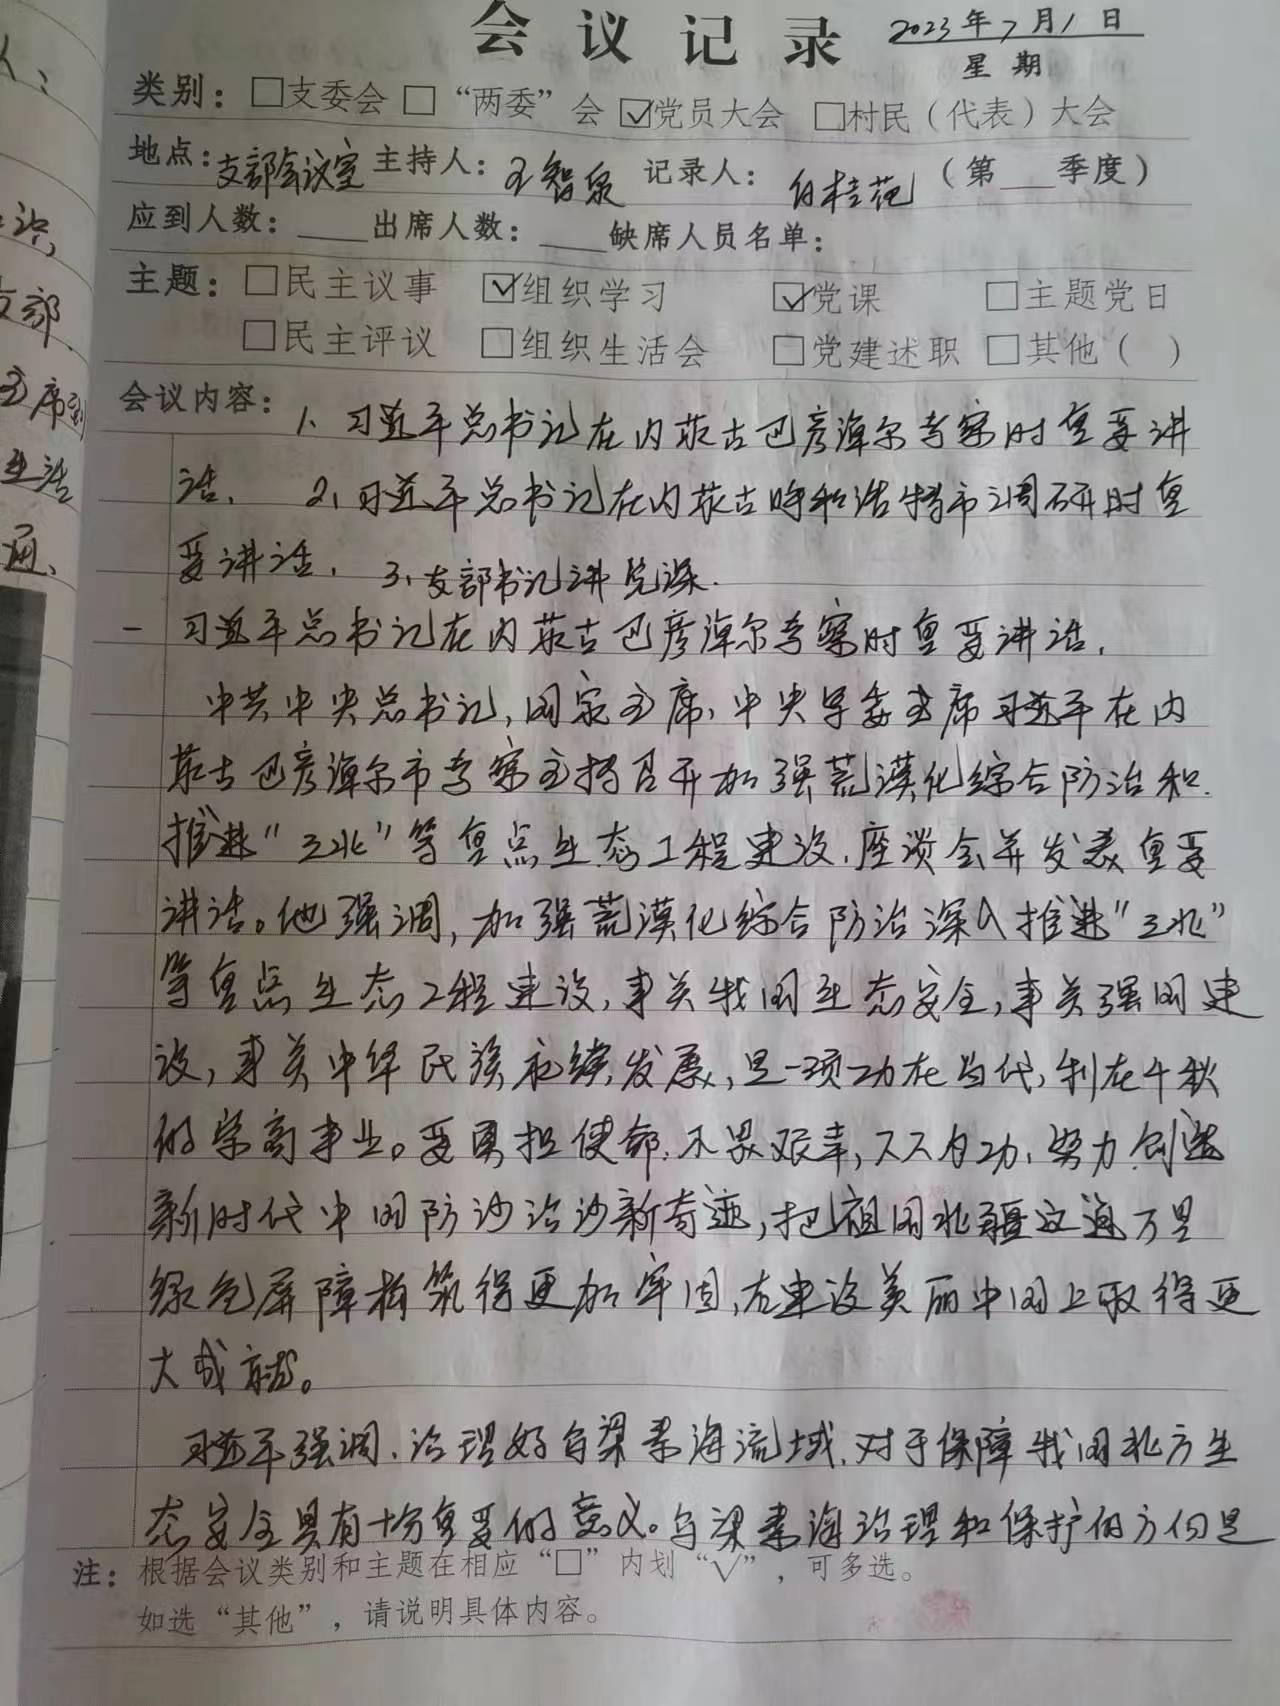 会议记录 2023年7月1日
星期
类别：□支委会 □“两委”会 ☑党员大会 □村民（代表）大会
地点：支部会议室 主持人：王智泉 记录人：白桂花 （第__季度）
应到人数：____出席人数：____缺席人员名单：
主题：□民主议事 ☑组织学习 ☑党课 □主题党日
□民主评议 □组织生活会 □党建述职 □其他（ ）
会议内容：1、习近平总书记在内蒙古巴彦淖尔考察时重要讲
话、 2、习近平总书记在内蒙古呼和浩特市调研时重
要讲话、 3、支部书记讲党课.
一 习近平总书记在内蒙古巴彦淖尔考察时重要讲话,
中共中央总书记,国家主席,中央军委主席习近平在内
蒙古巴彦淖尔市考察主持召开加强荒漠化综合防治和
推进“三北”等重点生态工程建设,座谈会并发表重要
讲话。他强调,加强荒漠化综合防治深入推进“三北”
等重点生态工程建设,事关我国生态安全,事关强国建
设,事关中华民族永续发展,是一项功在当代,利在千秋
的崇高事业。要勇担使命,不畏艰辛,久久为功,努力创造
新时代中国防沙治沙新奇迹,把祖国北疆这道万里
绿色屏障构筑得更加牢固,在建设美丽中国上取得更
大成就。
习近平强调,治理好乌梁素海流域,对于保障我国北方生
态安全具有十分重要的意义。乌梁素海治理和保护的方向是
注：根据会议类别和主题在相应“□”内划“√”，可多选。
如选“其他”，请说明具体内容。
识,
支部
主席到
生活
通、